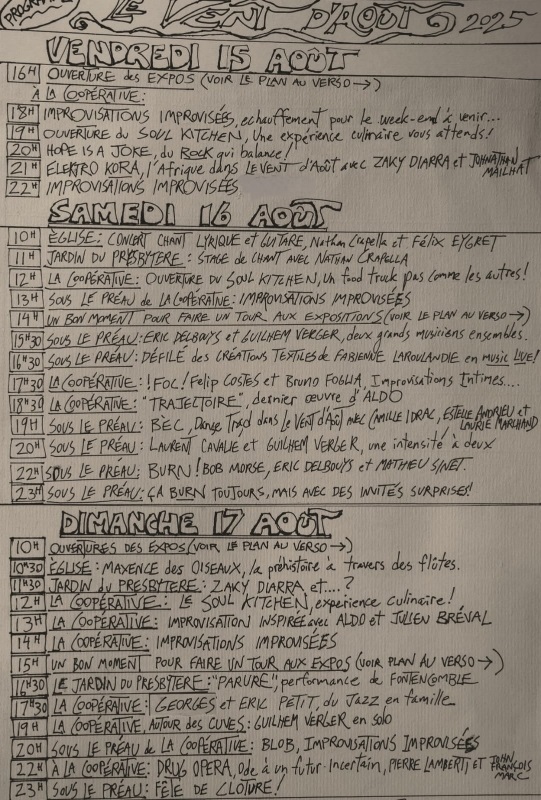 PROGRAMME
LE VENT D'AOÛT 2025
VENDREDI 15 AOÛT
16H OUVERTURE des EXPOS (VOIR LE PLAN AU VERSO →)
À LA COOPÉRATIVE:
18H IMPROVISATIONS IMPROVISÉES, echauffement pour le week-end à venir...
19H OUVERTURE DU SOUL KITCHEN, Une expérience culinaire vous attends!
20H HOPE IS A JOKE, du ROCK qui balance!
21H ELEKTRO KORA, l'Afrique dans LE VENT d'Août avec ZAKY DIARRA et JOHNATHAN MAILHAT
22H IMPROVISATIONS IMPROVISÉES
SAMEDI 16 AOÛT
10H ÉGLISE: CONCERT CHANT LYRIQUE et GUITARE, Nathan Crapella et Félix EYGRET
11H JARDIN DU PRESBYTERE: STAGE de CHANT AVEC NATHAN CRAPELLA
12H LA COOPÉRATIVE: OUVERTURE DU SOUL KITCHEN, un food truck pas comme les autres!
13H SOUS LE PRÉAU de LA COOPÉRATIVE: IMPROVISATIONS IMPROVISÉES
14H UN BON MOMENT POUR FAIRE UN TOUR AUX EXPOSITIONS (VOIR LE PLAN AU VERSO →)
15H30 SOUS LE PRÉAU: ERIC DELBOUYS et GUILHEM VERGER, deux grands musiciens ensembles.
16H30 SOUS LE PRÉAU: DÉFILÉ des CRÉATIONS TEXTILES de FABIENNE LAROULANDIE en music LIVE!
17H30 LA COOPÉRATIVE: !FOC! Felip COSTES et Bruno FOGLIA, Improvisations Intimes....
18H30 LA COOPÉRATIVE: "TRAJECTOIRE", dernier œuvre d'ALDO
19H SOUS LE PRÉAU: BEC, Danse Tracd dans le Vent d'Août avec CAMILLE IDRAC, ESTELLE ANDRIEU et LAURIE MARCHAND
20H SOUS LE PRÉAU: LAURENT CAVALIE et GUILHEM VERGER, une intensité à deux
22H SOUS LE PRÉAU: BURN! BOB MORSE, ERIC DELBOUYS et MATHIEU SINET.
23H SOUS LE PRÉAU: ÇA BURN TOUJOURS, MAIS AVEC DES INVITÉS SURPRISES!
DIMANCHE 17 AOÛT
10H OUVERTURES DES EXPOS (VOIR LE PLAN AU VERSO →)
10H30 ÉGLISE: MAXENCE DES OISEAUX, la préhistoire à travers des flûtes.
11H30 JARDIN du PRESBYTERE: ZAKY DIARRA et....?
12H LA COOPÉRATIVE: LE SOUL KITCHEN, experience culinaire!
13H LA COOPÉRATIVE: IMPROVISATION INSPIRÉE avec ALDO et JULIEN BRÉVAL
14H LA COOPÉRATIVE: IMPROVISATIONS IMPROVISÉES
15H UN BON MOMENT POUR FAIRE UN TOUR AUX EXPOS (VOIR PLAN AU VERSO →)
16H30 LE JARDIN DU PRESBYTERE: "PARURE", performance de FONTENCOMBLE
17H30 LA COOPÉRATIVE: GEORGES et ERIC PETIT, du Jazz en famille
19H LA COOPÉRATIVE, AUTOUR des CUVES: GUILHEM VERGER en solo
20H SOUS LE PRÉAU de LA COOPÉRATIVE: BLOB, IMPROVISATIONS IMPROVISÉES
22H À LA COOPÉRATIVE: DRUG OPERA, Ode à un futur Incertain, PIERRE LAMBERTI et JEAN FRANÇOIS MARC
23H SOUS LE PRÉAU: FÊTE DE CLOTURE!